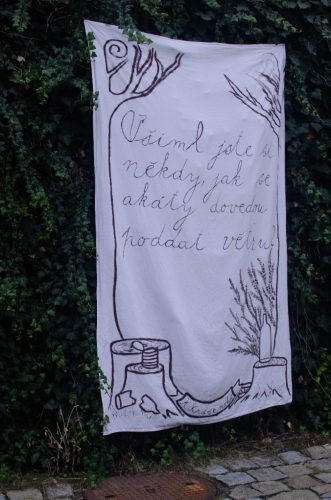 Všiml jste si
někdy, jak se
akáty dovedou
poddat větru?